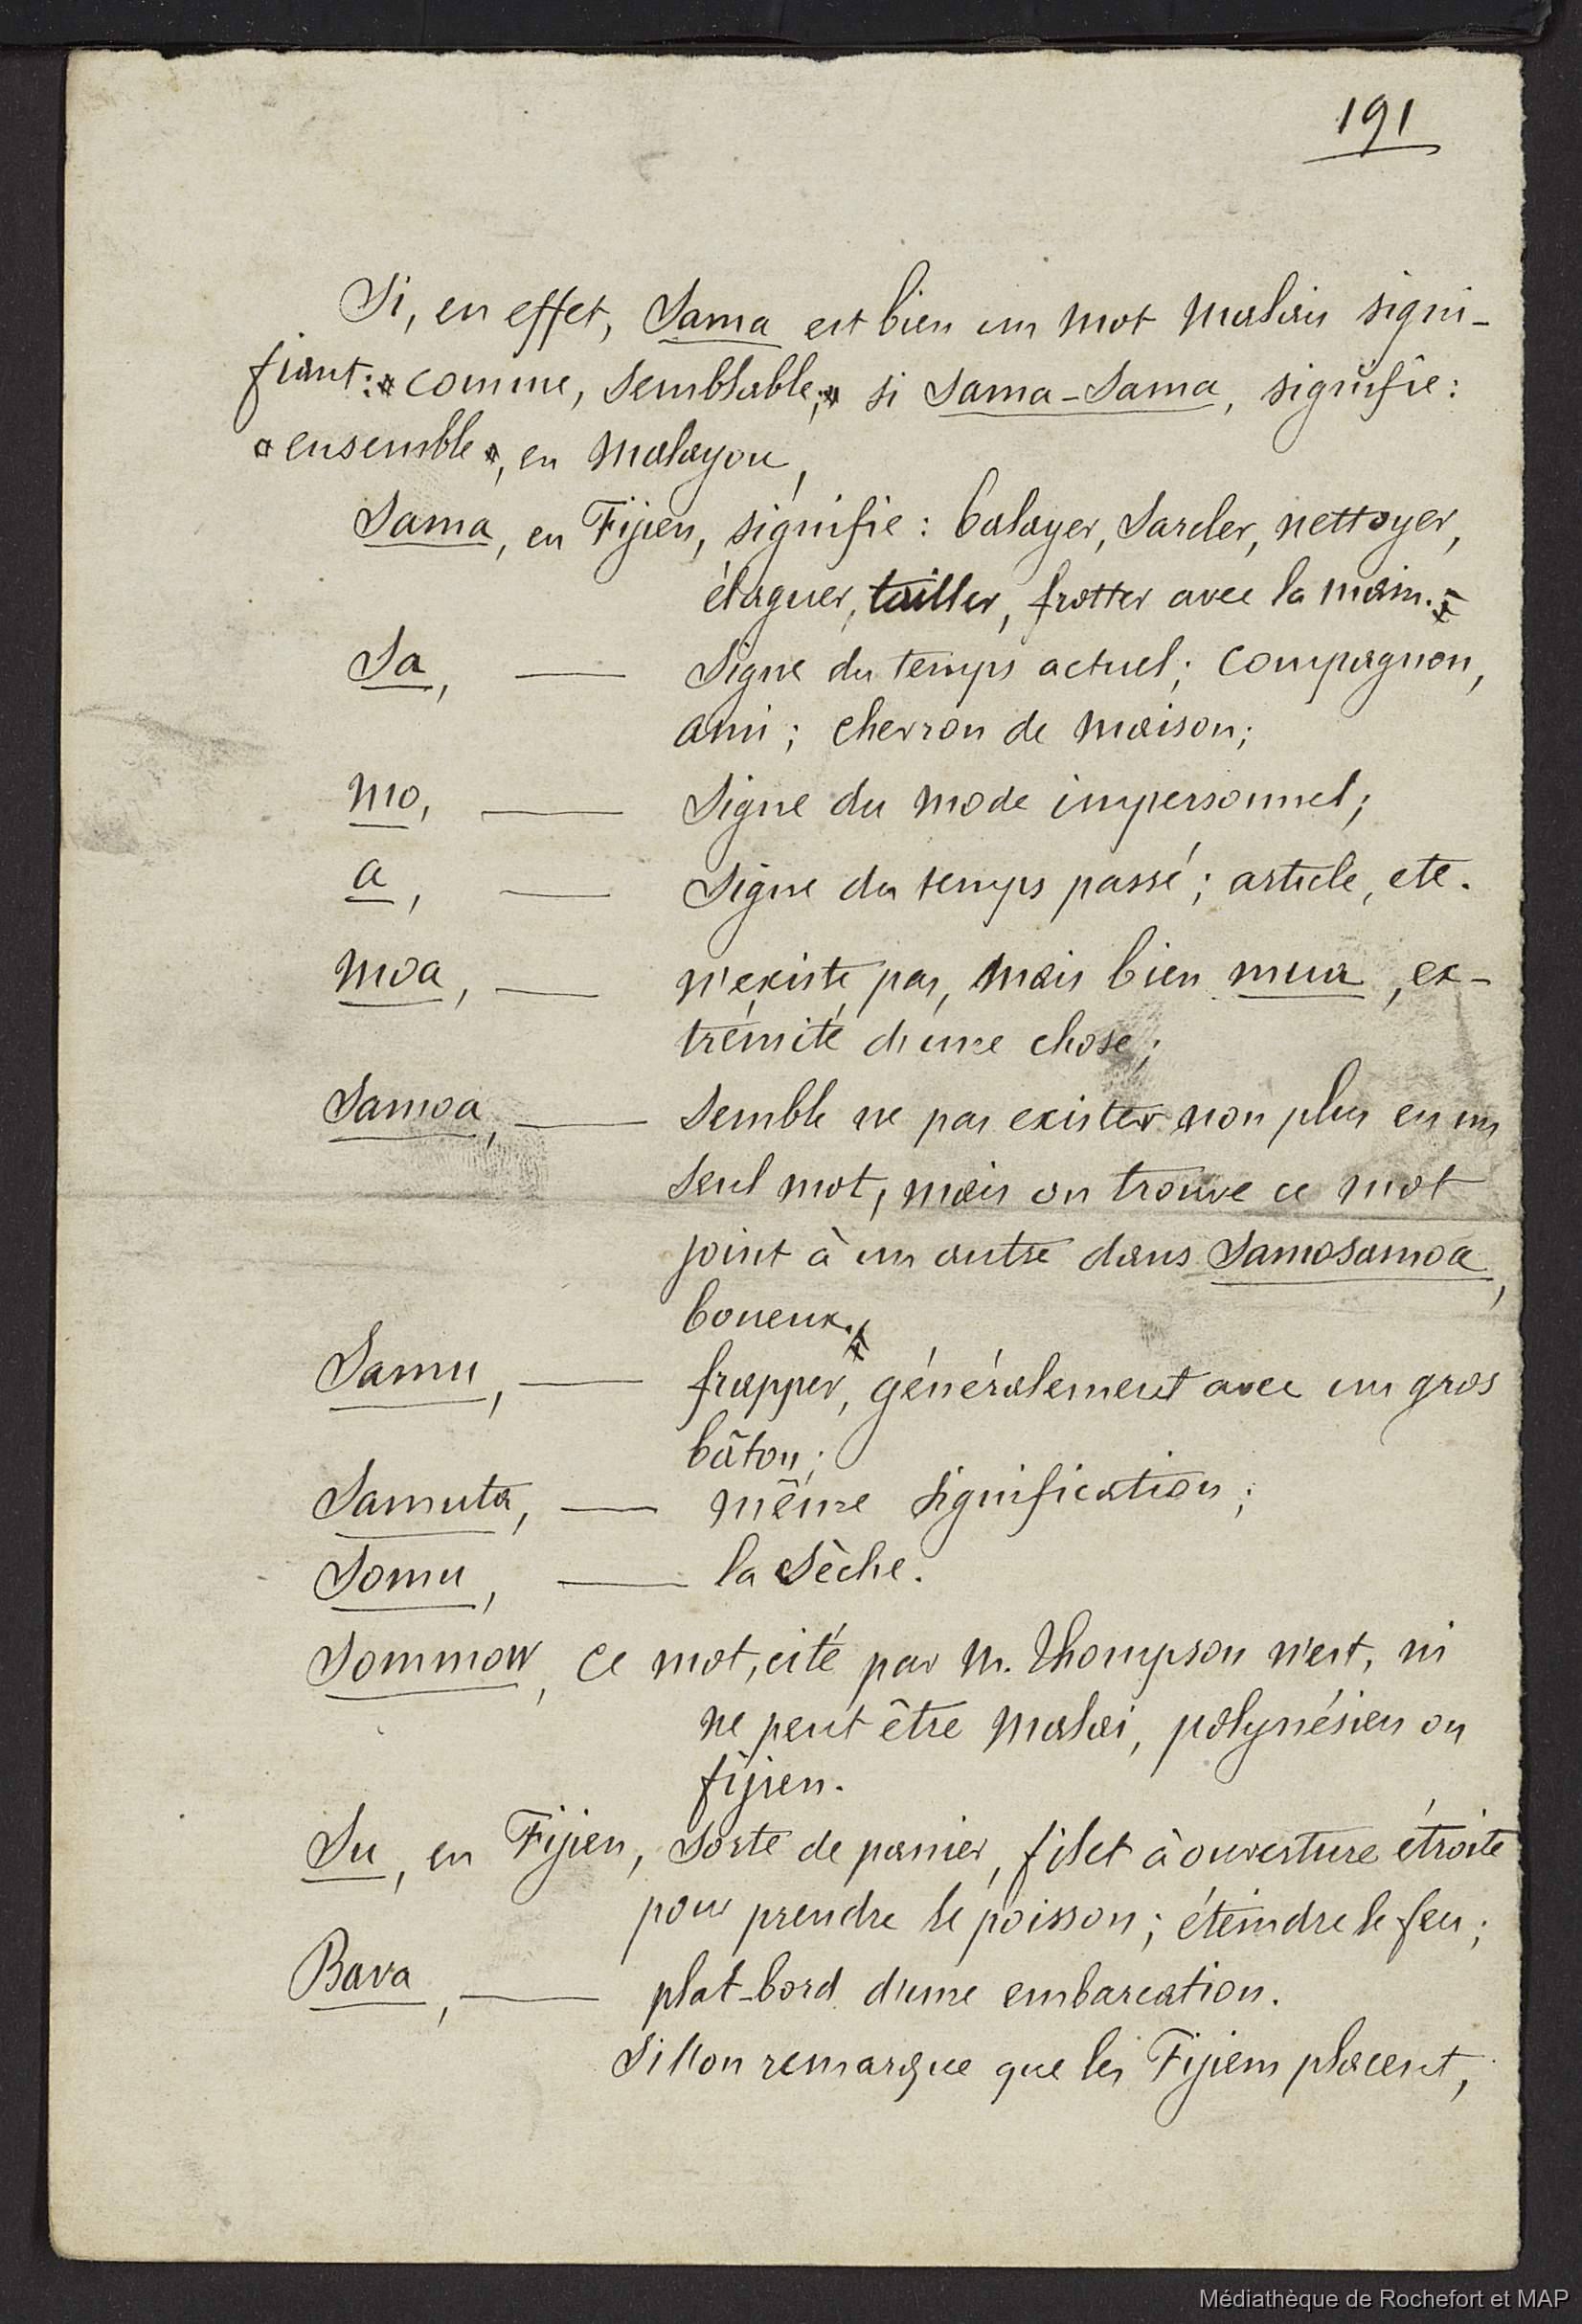 191
Si, en effet, Sama est bien un mot malais signi-
fiant: comme, semblable, si Sama-Sama, signifie:
ensemble, en malayou,
Sama, en Fijien, signifie: balayer, sarcler, nettoyer,
élaguer, tailler, frotter avec la main.
Sa, — Signe du temps actuel; compagnon,
ami; chevron de maison;
mo, — Signe du mode impersonnel;
a, — Signe du temps passé; article, etc.
moa, — n'existe pas, mais bien mua, ex-
trémité d'une chose;
Samoa, — Semble ne pas exister non plus en un
seul mot, mais on trouve ce mot
joint à un autre dans Samosamoa,
boueux.
Samu, — frapper, généralement avec un gros
bâton;
Samuta, — même signification;
Somu, — la sèche.
Sommow, ce mot, cité par M. Thompson n'est, ni
ne peut être malai, polynésien ou
fijien.
Su, en Fijien, sorte de panier, filet à ouverture étroite
pour prendre le poisson; éteindre le feu;
Bava, — plat-bord d'une embarcation.
Si l'on remarque que les Fijiens placent,
Médiathèque de Rochefort et MAP